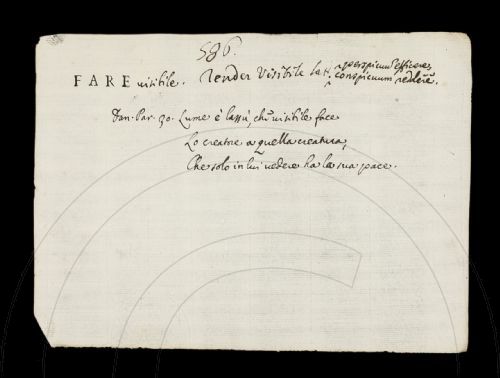 586.
FARE visibile. Render visibile lat. perspicuum efficere,
conspicuum reddere.
Dan. Par. 30. Lume è lassù, che visibile face
Lo creatore a quella creatura,
Che solo in lui vedere ha la sua pace.